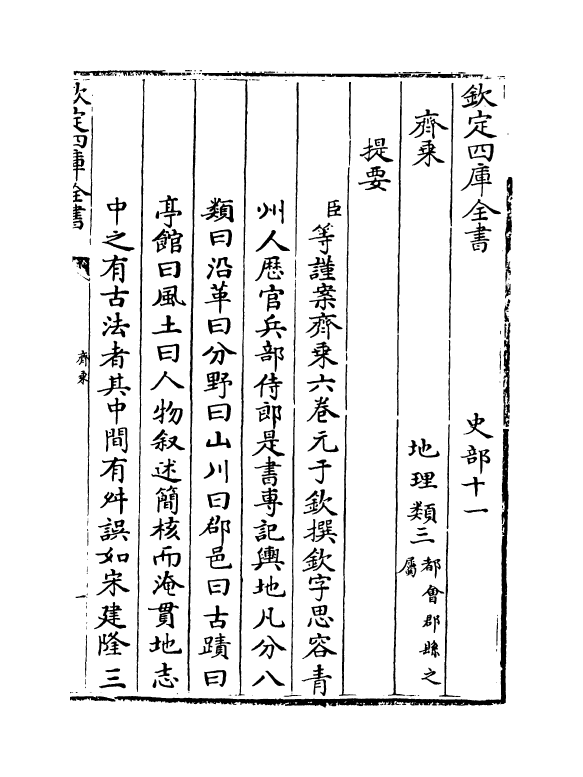 欽定四庫全書 史部十一
齊乘 地理類三都會郡縣之屬
提要
臣等謹案齊乘六卷元于欽撰欽字思容青
州人歷官兵部侍郎是書專記輿地凡分八
類曰沿革曰分野曰山川曰郡邑曰古蹟曰
亭館曰風土曰人物叙述簡核而淹貫地志
中之有古法者其中間有舛誤如宋建隆三
欽定四庫全書 齊乘 一